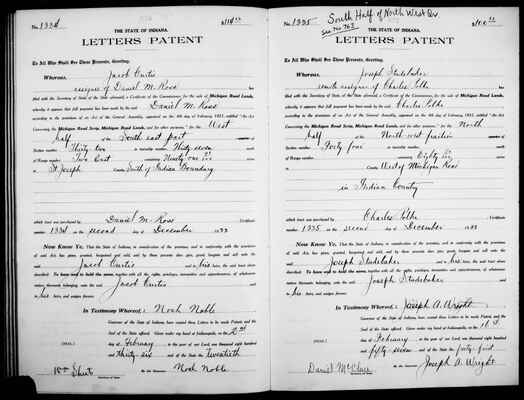 No. 1334
THE STATE OF INDIANA.
LETTERS PATENT
To All Who Shall See These Presents, Greeting.
Whereas, Jacob Curtis
assignee of Daniel M. Ross has
filed with the Secretary of State the State aforesaid, a Certificate of the Commissioner for the sale of Michigan Road Lands,
whereby it appears that full payment has been made by the said Daniel M. Ross
according to the provisions of an Act of the General Assembly, approved on the 4th day of February 1832, entitled "An Act
Concerning the Michigan Road Scrip, Michigan Road Lands, and for other purposes," for the West
half of the South east part of
Section number Thirty two in township Thirty seven
of Range number Two East
in St Joseph County South of Indian Boundary
which tract was purchased by Daniel M. Ross Certificate
number 1334 on the second day of December 1833
Now Know Ye, That the State of Indiana, in consideration of the premises, and in conformity with the provisions
of said Act has given, granted, bargained and sold, and by these presents does give, grant, bargain and sell unto the
said Jacob Curtis and his heirs, the said tract above
described. To have and to hold the same, together with all the rights, privileges, immunities and appurtenances, of whatsoever
nature thereunto belonging, unto the said Jacob Curtis and
to his heirs, and assigns forever.
In Testimony Whereof, I, Noah Noble
Governor of the State of Indiana, have caused these Letters to be made Patent and the
Seal of the State affixed. Given under my hand at Indianapolis, on the 2nd
(SEAL) day of February in the year of our Lord, one thousand eight hundred
and thirty six and of the State the twentieth
By the Governor: Noah Noble
Wm Sheets
Secretary of State
No. 1335
South Half of North West Qr.
See No 763
THE STATE OF INDIANA.
LETTERS PATENT
To All Who Shall See These Presents, Greeting.
Whereas, Joseph Studebaker
assignee of Charles Polke has
filed with the Secretary of State the State aforesaid, a Certificate of the Commissioner for the sale of Michigan Road Lands,
whereby it appears that full payment has been made by the said Charles Polke
according to the provisions of an Act of the General Assembly, approved on the 4th day of February 1832, entitled "An Act
Concerning the Michigan Road Scrip, Michigan Road Lands, and for other purposes," for the North
half of the North west fraction of
Section number Forty four in township
of Range number Eighty six
in County West of Michigan Road
in Indian Country
which tract was purchased by Charles Polke Certificate
number 1335 on the second day of December 1833
Now Know Ye, That the State of Indiana, in consideration of the premises, and in conformity with the provisions
of said Act has given, granted, bargained and sold, and by these presents does give, grant, bargain and sell unto the
said Joseph Studebaker and his heirs, the said tract above
described. To have and to hold the same, together with all the rights, privileges, immunities and appurtenances, of whatsoever
nature thereunto belonging, unto the said Joseph Studebaker and
to his heirs, and assigns forever.
In Testimony Whereof, I, Joseph A. Wright
Governor of the State of Indiana, have caused these Letters to be made Patent and the
Seal of the State affixed. Given under my hand at Indianapolis, on the
(SEAL) day of February in the year of our Lord, one thousand eight hundred
and fifty seven and of the State the forty first
By the Governor: Joseph A. Wright
Daniel McClure
Secretary of State